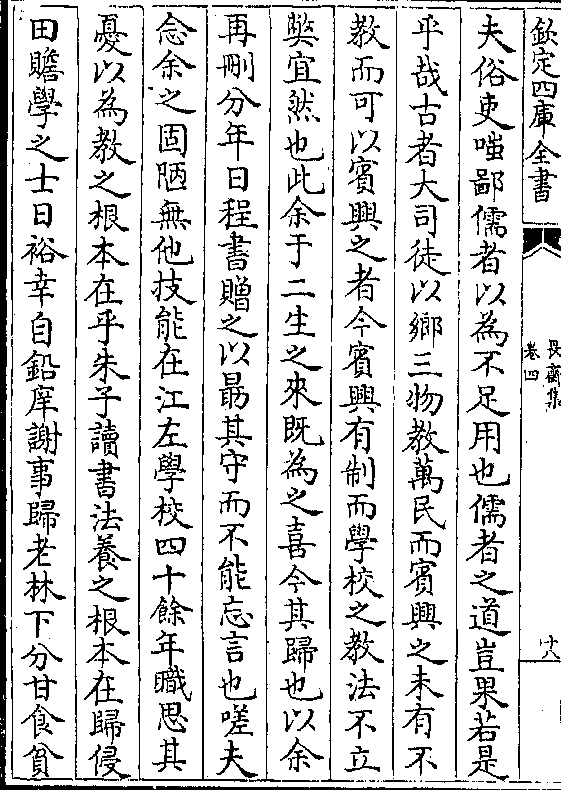 欽定四庫全書
畏齋集
卷四
十八
夫俗吏嗤鄙儒者以為不足用也儒者之道豈果若是
乎哉古者大司徒以鄉三物教萬民而賓興之未有不
教而可以賓興之者今賓興有制而學校之教法不立
弊宜然也此余于二生之來既為之喜今其歸也以余
再刪分年日程書贈之以勗其守而不能忘言也嗟夫
念余之固陋無他技能在江左學校四十餘年職思其
憂以為教之根本在乎朱子讀書法養之根本在歸侵
田贍學之士日裕幸自鉛庠謝事歸老林下分甘食貧